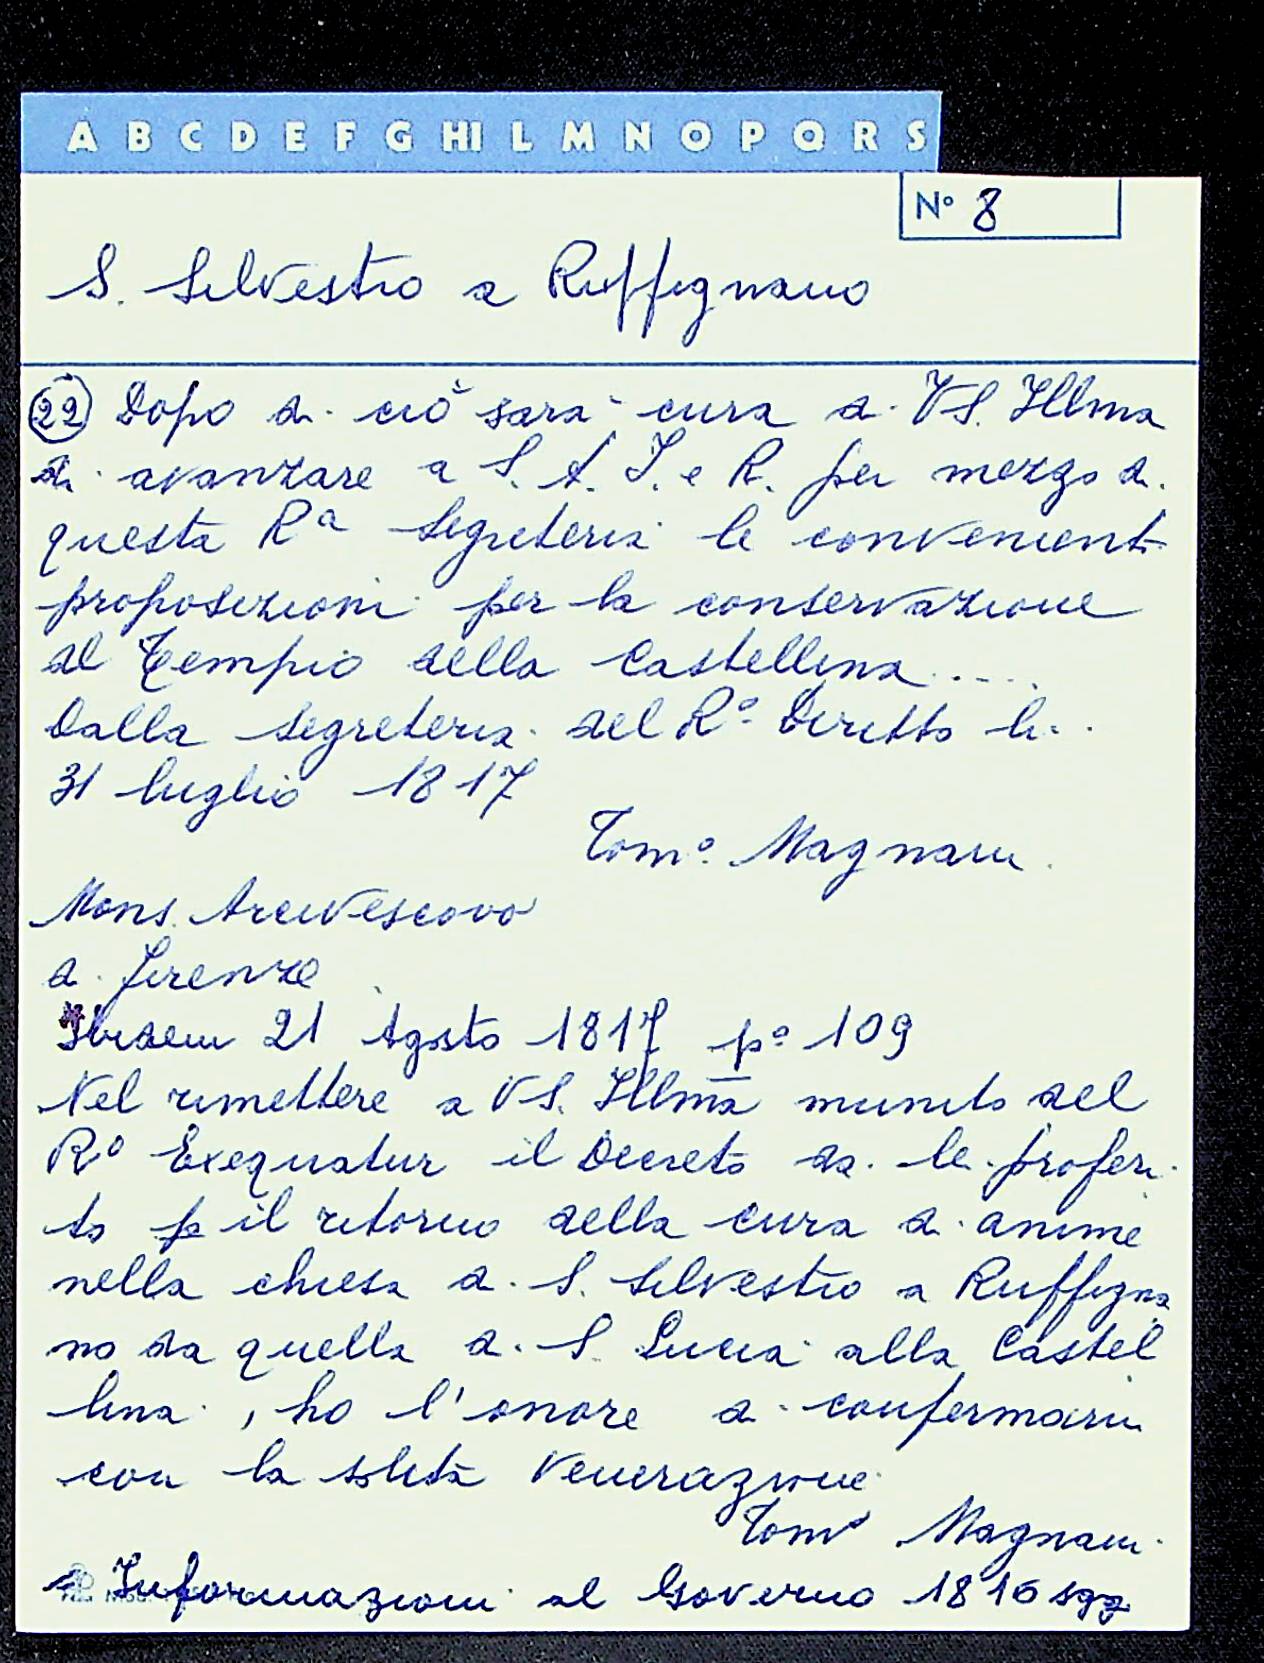 A B C D E F G HI L M N O P Q R S
N° 8
S. Silvestro a Ruffignano
(22) Dopo di ciò sarà cura di VS. Illma
di avanzare a S. A. I. e R. per mezzo di
questa Rª Segreteria le convenienti
proposizioni per la conservazione
al Tempio della Castellina ....
Dalla Segreteria del R° Diritto li..
31 luglio 1817
Tom° Magnani
Mons. Arcivescovo
di Firenze
Ibidem 21 Agosto 1817 p° 109
Nel rimettere a VS. Illma munito del
R° Exequatur il Decreto da lei proferi
to p il ritorno della cura di anime
nella chiesa di S. Silvestro a Ruffigna
no da quella di S. Lucia alla Castel
lina, ho l'onore di confermarmi
con la solita venerazione
Tom° Magnani
Informazioni al Governo 1816 sgg